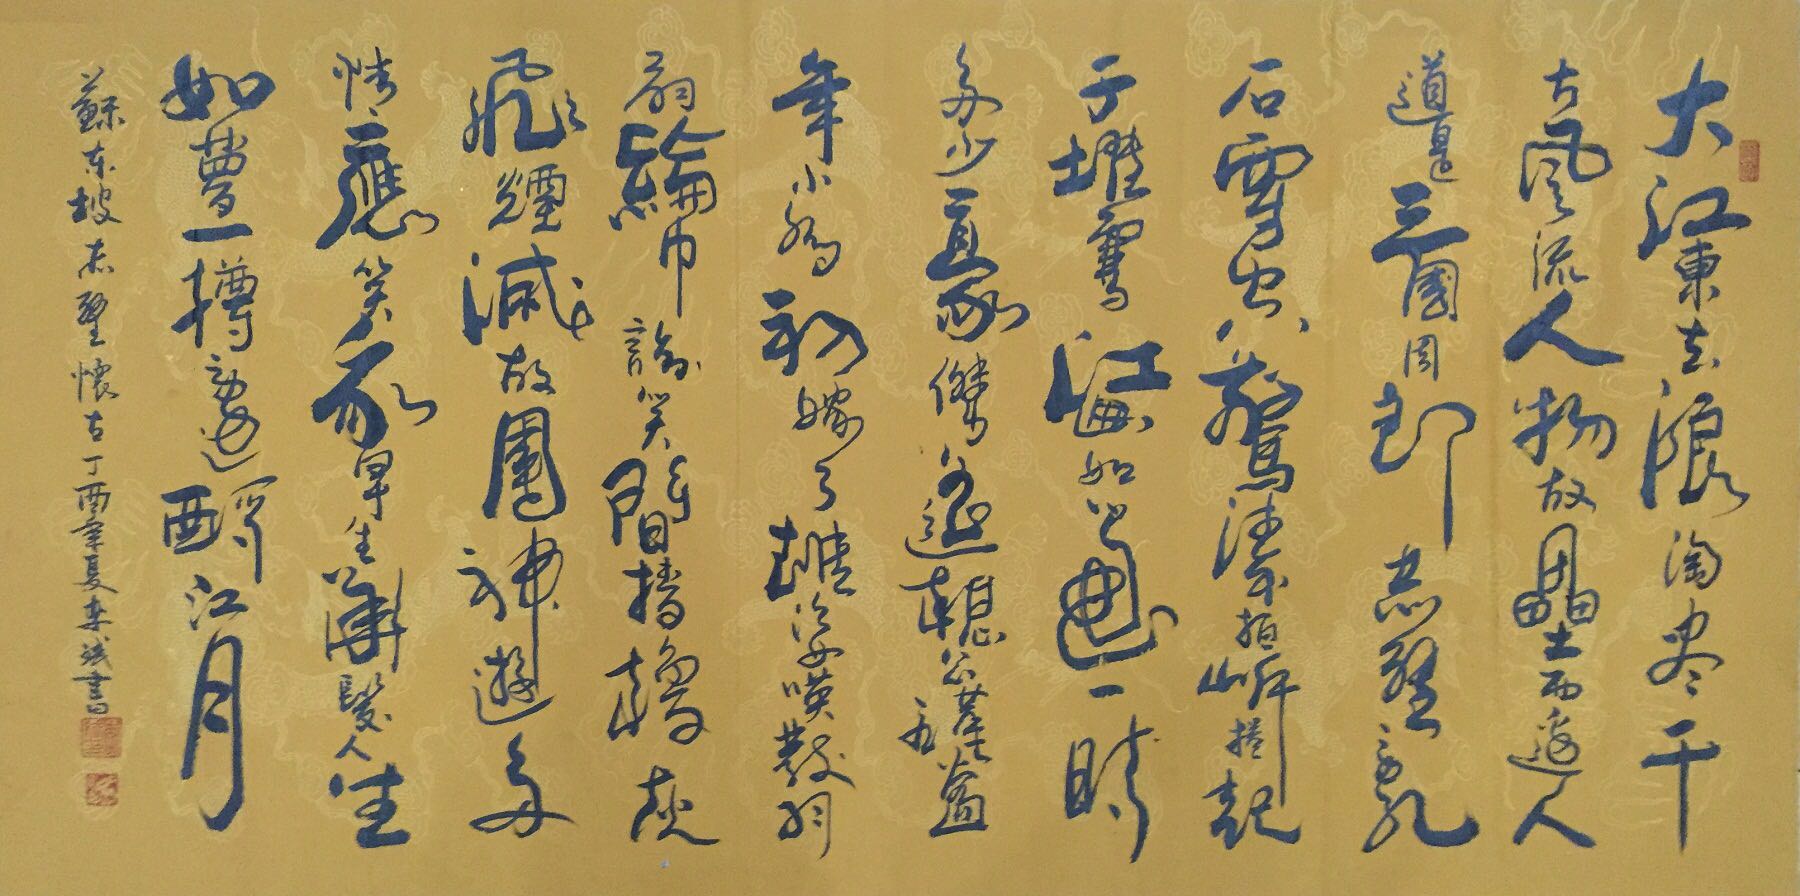 大江東去浪淘尽千
古風流人物故壘西邊人
道是三國周郎赤壁乱
石穿空驚濤拍岸捲起
千堆雪江山如画一時
多少豪傑遥想公瑾當
年小喬初嫁了雄姿英發羽
扇綸巾談笑間檣櫓灰
飛煙滅故國神遊多
情應笑我早生華髮人生
如夢一樽還酹江月
蘇东坡赤壁懷古丁酉年夏書